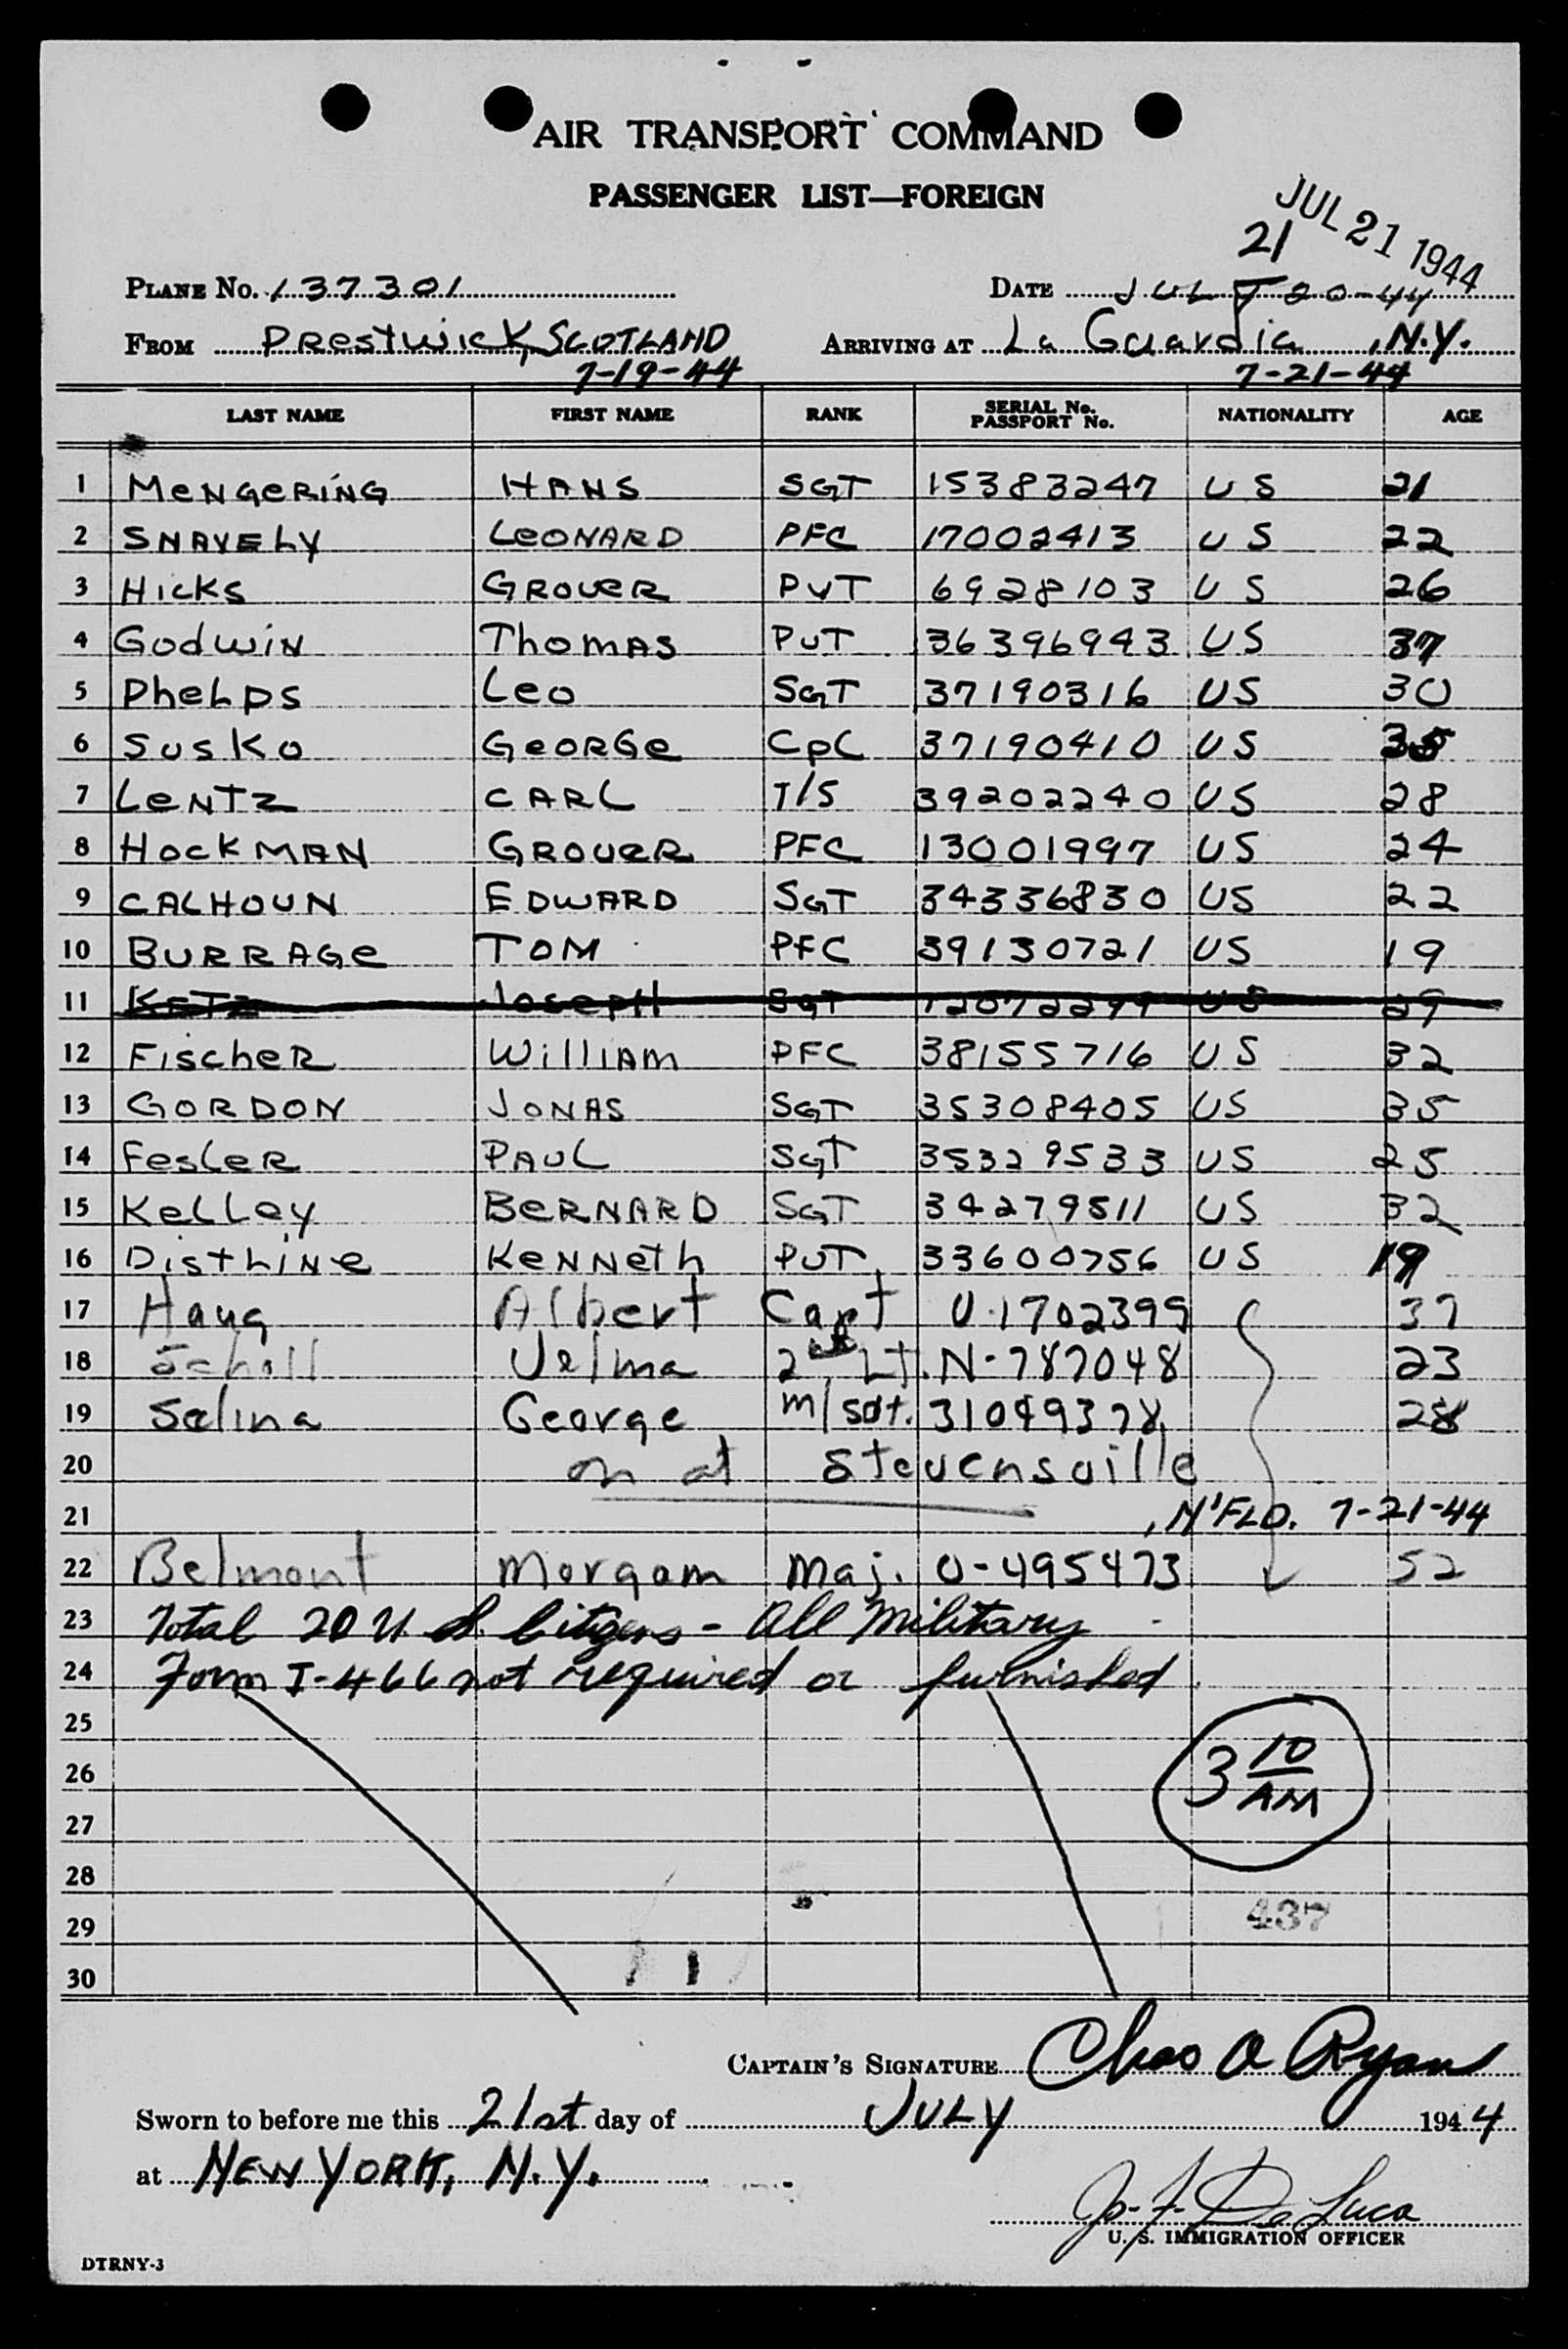 AIR TRANSPORT COMMAND
PASSENGER LIST—FOREIGN
JUL 21 1944
21
PLANE No. 137301 DATE JULY 20-44
FROM PRestwick, SCOTLAND ARRIVING AT La Guardia, N.Y.
7-19-44 7-21-44
LAST NAME FIRST NAME RANK SERIAL No. PASSPORT No. NATIONALITY AGE
1 MeNGeRiNG HANS SGT 15383247 US 21
2 SNAVELY LeONARD PFC 17002413 US 22
3 Hicks GROVeR PVT 6928103 US 26
4 GodwiN ThomAS PVT 36396943 US 37
5 PheLps Leo SGT 37190316 US 30
6 SusKo GeORGe CpL 37190410 US 35
7 LeNTz CARL T/5 39202240 US 28
8 HockMAN GROVeR PFC 13001997 US 24
9 CALHOUN EDWARD SGT 34336830 US 22
10 BURRAGe TOM PFC 39130721 US 19
11 Joseph SGT US
12 FischeR WilliAm PFC 38155716 US 32
13 GORDON JONAS SGT 35308405 US 35
14 FesLeR PAUL SGT 35329533 US 25
15 KeLLey BeRNARD SGT 34279511 US 32
16 DisthiNe KeNNeth PVT 33600756 US 19
17 Haug Albert Capt O-1702399 37
18 Scholl Velma 2nd Lt. N-787048 23
19 Salina George m/sgt. 31049378 28
20 on at Stevensville
21 , N'FLD. 7-21-44
22 Belmont Morgam Maj. O-495473 52
23 Total 20 U.S. Citizens - All Military
24 Form I-466 not required or furnished
25
26 3 10 AM
27
28
29 437
30
CAPTAIN'S SIGNATURE Chas O Ryan
Sworn to before me this 21st day of JULY 1944
at NEW YORK, N.Y.
Jo. F. De Luca
U. S. IMMIGRATION OFFICER
DTRNY-3